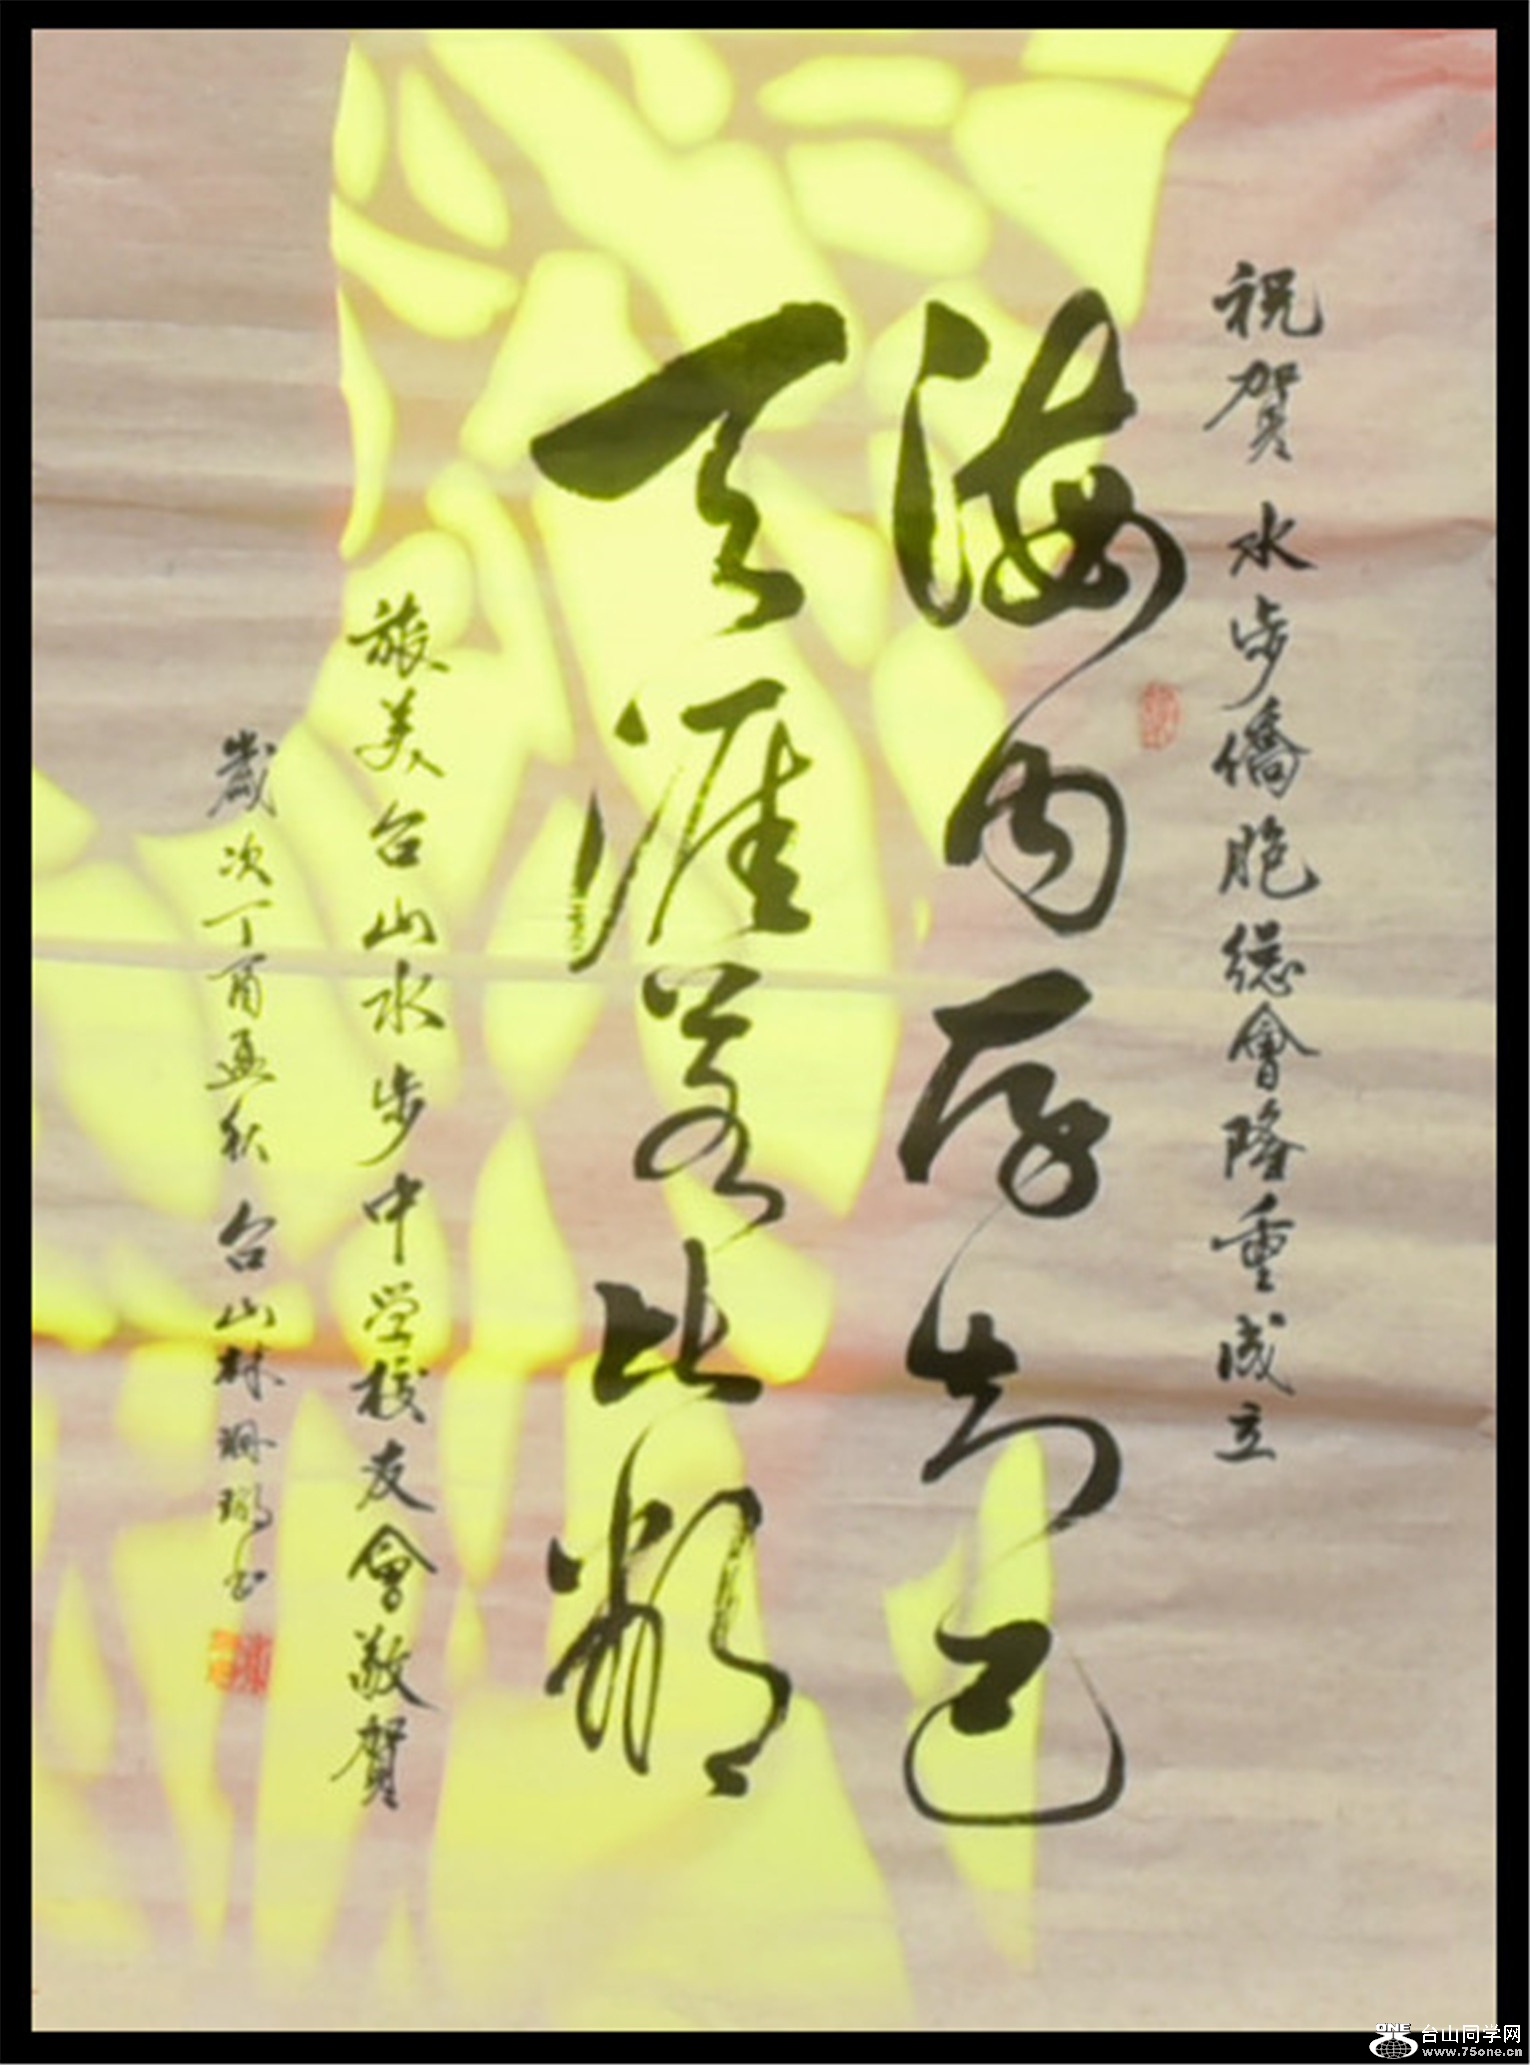 祝贺水步僑胞總會隆重成立
海内存知己
天涯若比鄰
旅美台山水步中学校友會敬贺
歲次丁酉孟秋台山林
ONE 台山同学网
www.75one.cn